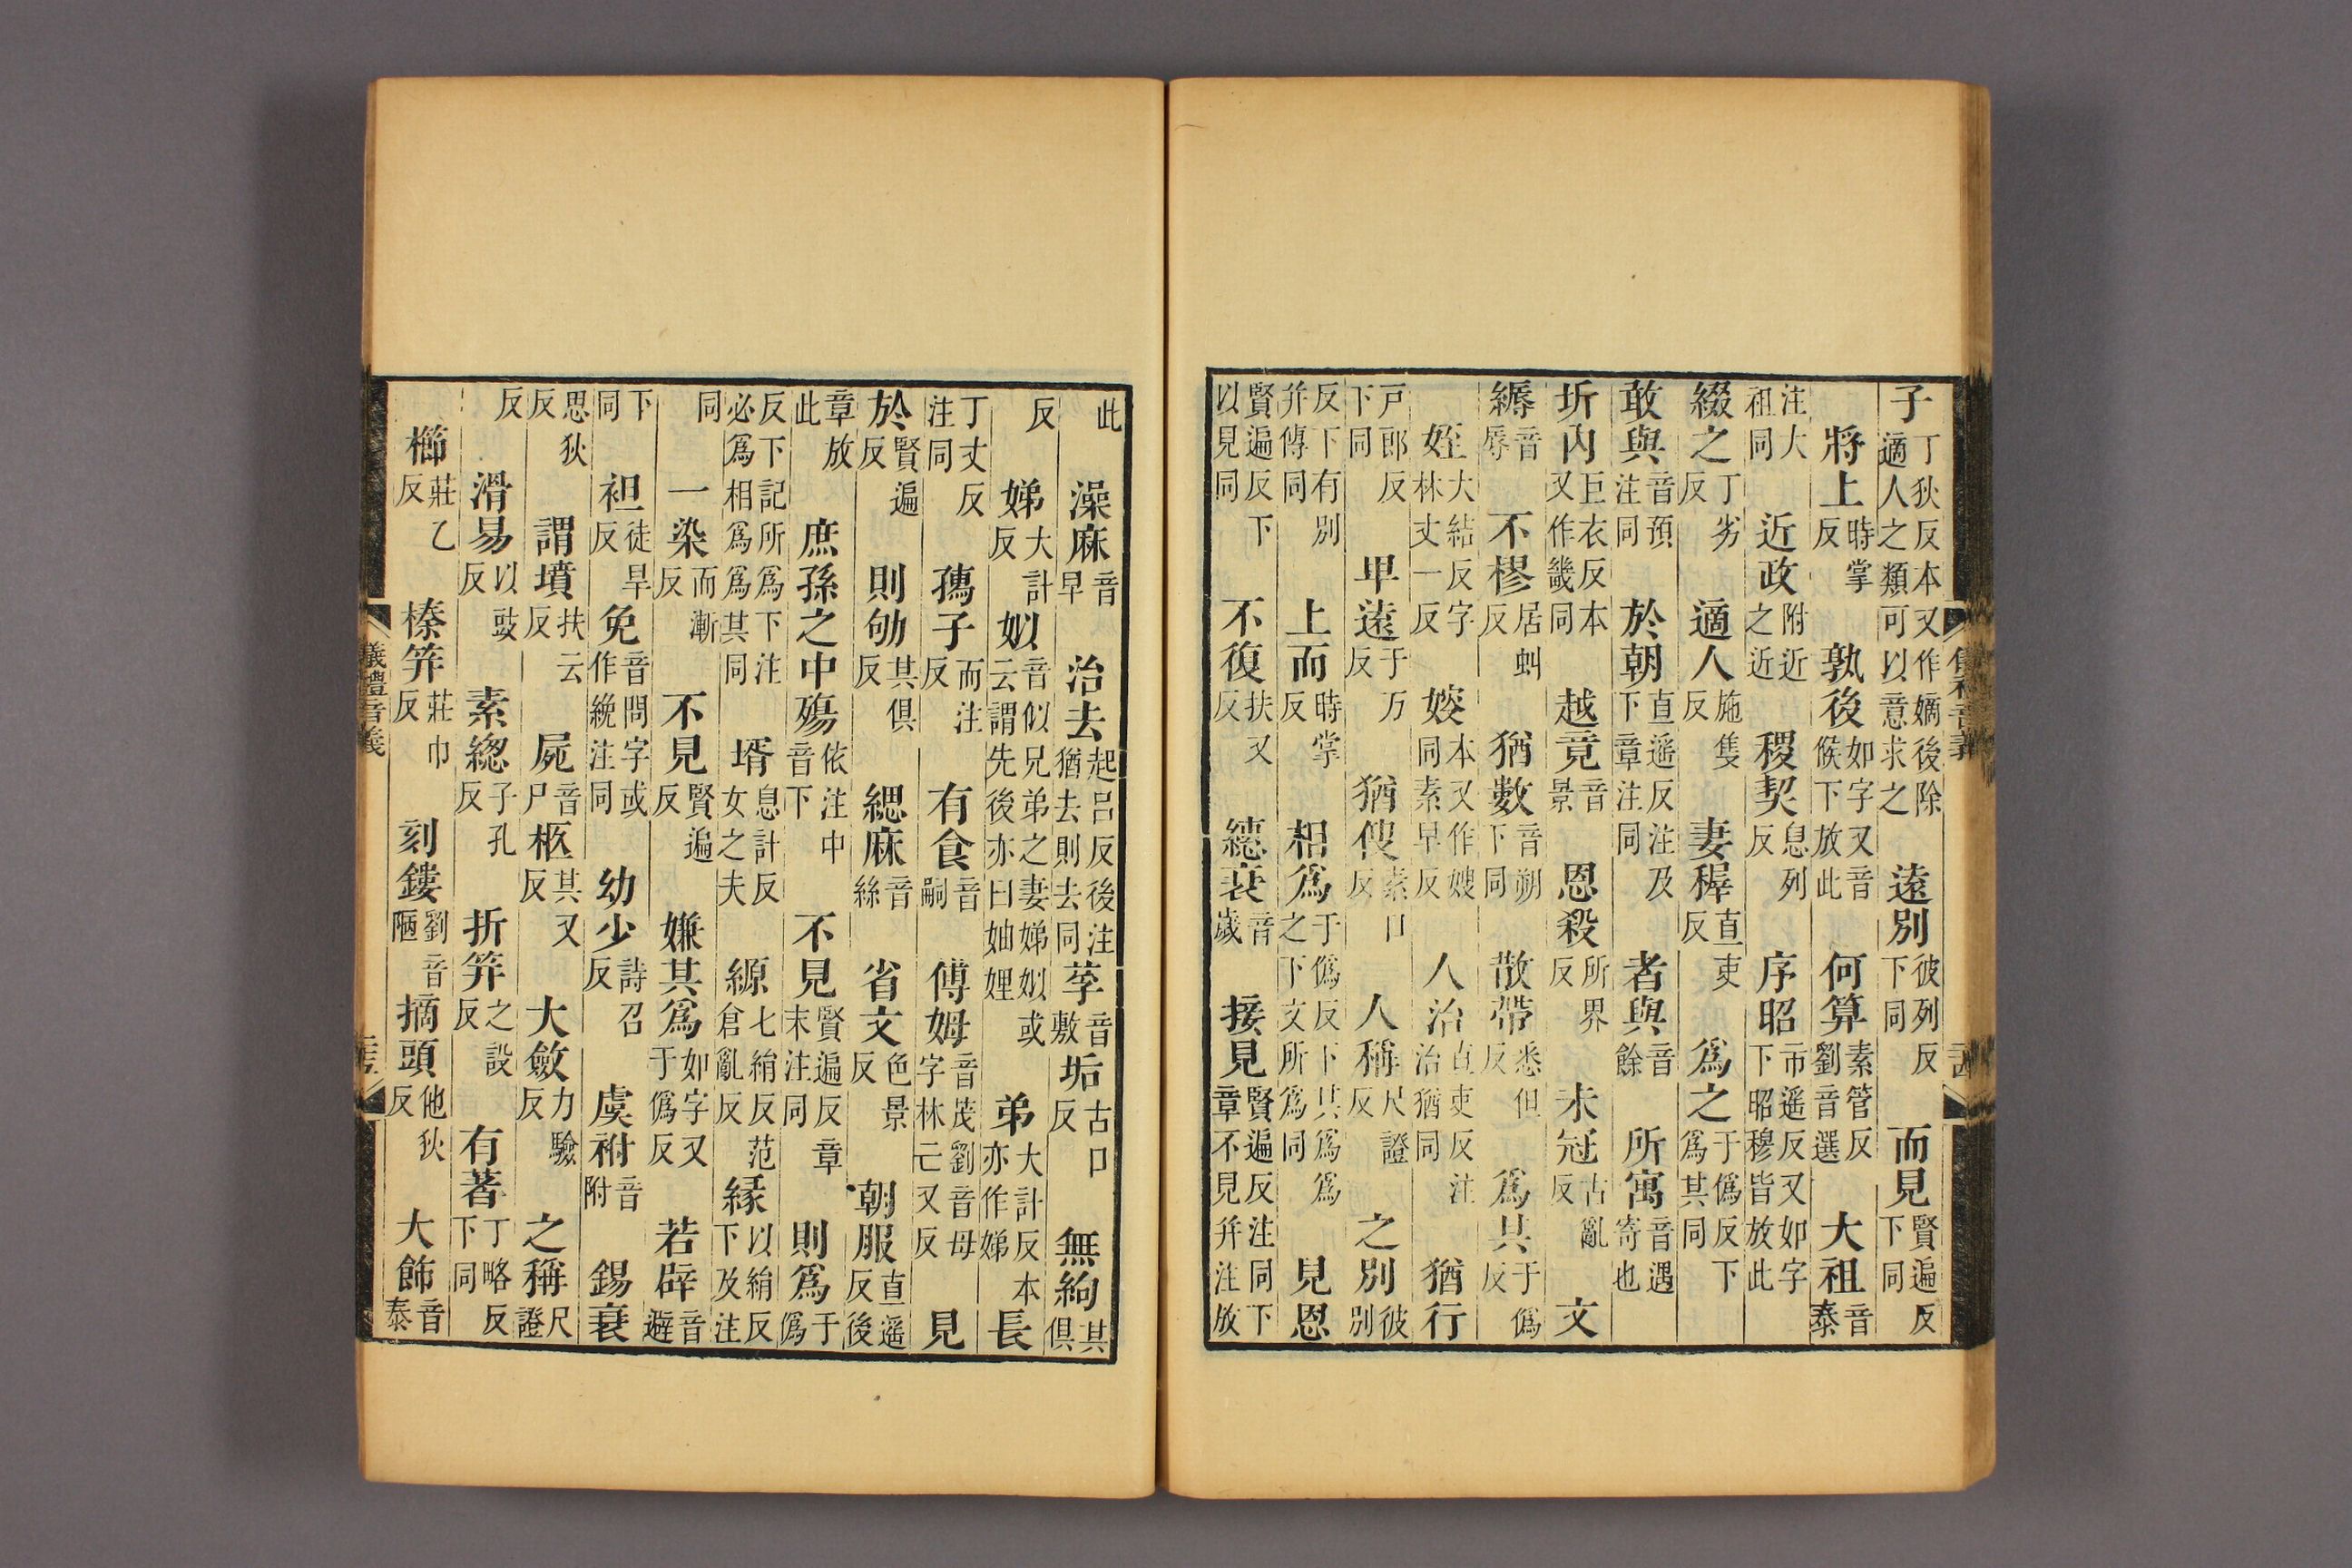 子丁狄反本又作嫡後除適人之類可以意求之遠別彼列反下同而見賢遍反下同
將上時掌反孰後如字又音候下放此何算素管反劉音選大祖音泰
注大祖同近政附近之近稷契息列反序昭市遥反又如字下昭穆皆放此
綴之丁劣反適人施隻反妻稺直吏反爲之于僞反下爲其同
敢與音預注同於朝直遥反注及下章注同者與音餘所寓音遇寄也
圻內巨衣反本又作畿同越竟音景恩殺所界反未冠古亂反文
縟音辱不樛居虯反猶數音朔下同散帶悉但反爲共于僞反
姪大結反字林丈一反㛮本又作嫂同素早反人治直吏反注治猶同猶行
戸郎反下同卑遠于万反猶傁素口反人稱尺證反之別彼別
反下有別并傳同上而時掌反相爲于僞反下其爲爲之下文所爲同見恩
賢遍反下以見同不復扶又反繐衰音歲接見賢遍反注同下章不見并注放
此澡麻音早治去起呂反後注猶去則去同莩音敷垢古口反無絇其俱
反娣大計反姒音似兄弟之妻娣姒或云謂先後亦曰妯娌弟大計反本亦作娣長
丁丈反注同孺子而注反有食音嗣傅姆音茂劉音母字林亡又反見
於賢遍反則劬其俱反緦麻音絲省文色景反朝服直遥反後
章放此庶孫之中殤依注中音下不見賢遍反章末注同則爲于僞
反下記所爲下注必爲相爲爲其同壻息計反女之夫縓七絹反范倉亂反緣以絹反下及注
同一染而漸反不見賢遍反嫌其爲如字又于僞反若辟音避
下同袒徒旱反免音問字或作絻注同幼少詩召反虞祔音附錫衰
思狄反謂墳扶云反屍音尸柩其又反大斂力驗反之稱尺證
反滑易以豉反素緫子孔反折笄之設反有著丁略反下同
櫛莊乙反榛笄莊巾反刻鏤劉音陋摘頭他狄反大飾音泰
儀禮音義